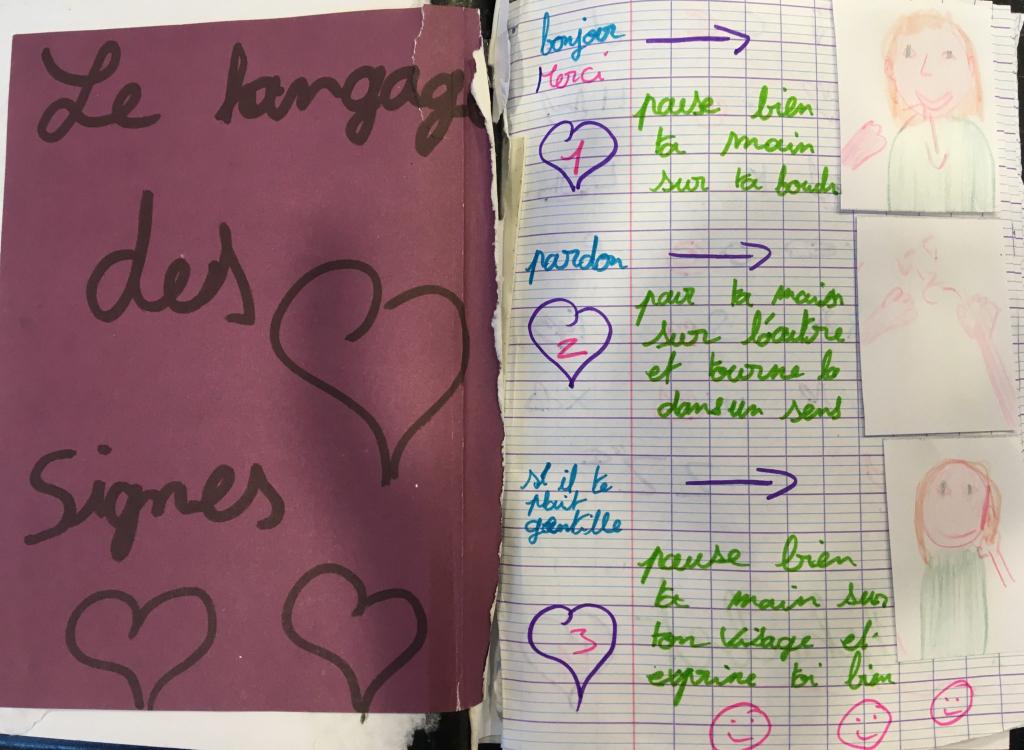 Le langage
des
Signes
bonjour
Merci
1
pause bien
ta main
sur ta bouch
pardon
2
pair ta main
sur l'éautre
et tourne la
dans un sens
s'il il te
plait
gentille
3
pause bien
ta main sur
ton visage et
exprime toi bien